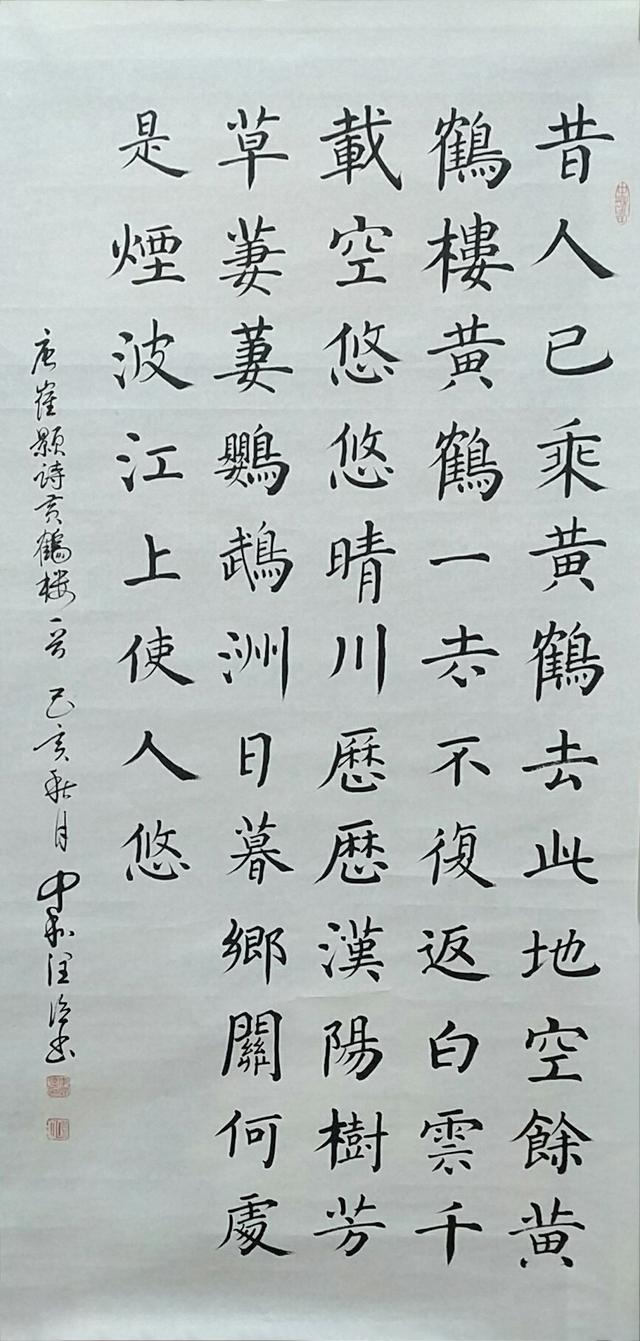 昔人已乘黄鶴去此地空餘黄
鶴樓黄鶴一去不復返白雲千
載空悠悠晴川厯厯漢陽樹芳
草萋萋鸚鵡洲日暮鄉關何處
是煙波江上使人悠
唐崔顥詩黄鶴楼一首 己亥秋月 中和書